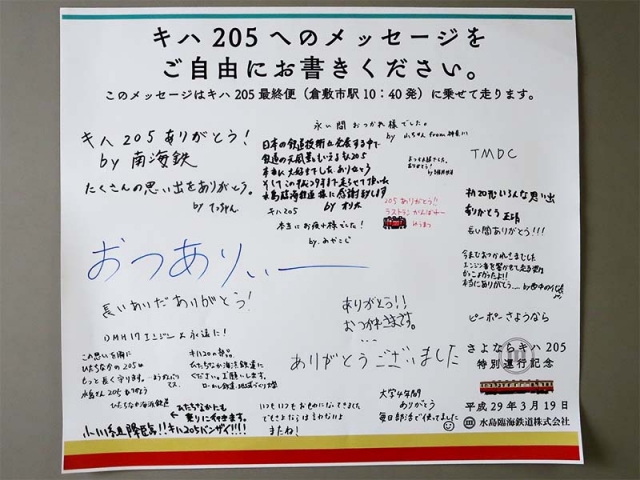 キハ205へのメッセージを
ご自由にお書きください。
このメッセージはキハ205最終便（倉敷市駅10：40発）に乗せて走ります。
永い間おつかれ様でした。
キハ205ありがとう！
by 南海鉄
たくさんの思い出をありがとう。
日本の鉄道技術が
by
キハ205
本当にお疲れ様でした！
by. みやこじ
205ありがとう!!
ラストランがんばれー
TMDC
いろんな思い出
ありがとう
長い間ありがとう!!!
おつありぃー
長いあいだありがとう！
DMH17エンジンよ永遠に！
ありがとう!!
おつかれさまです。
...
ありがとうございました
本当にありがとう
ピーポーさようなら
さよならキハ205
特別運行記念
平成29年3月19日
水島臨海鉄道株式会社
この思いを胸に
ひたちなかの205も
もっと長く守ります。
ひたちなか海浜鉄道
キハ20の部品、
ください。お願いします。
乗りにゆきます。
キハ205バンザイ!!!!
またね！
大学4年間
ありがとう
毎日部活で使ってました